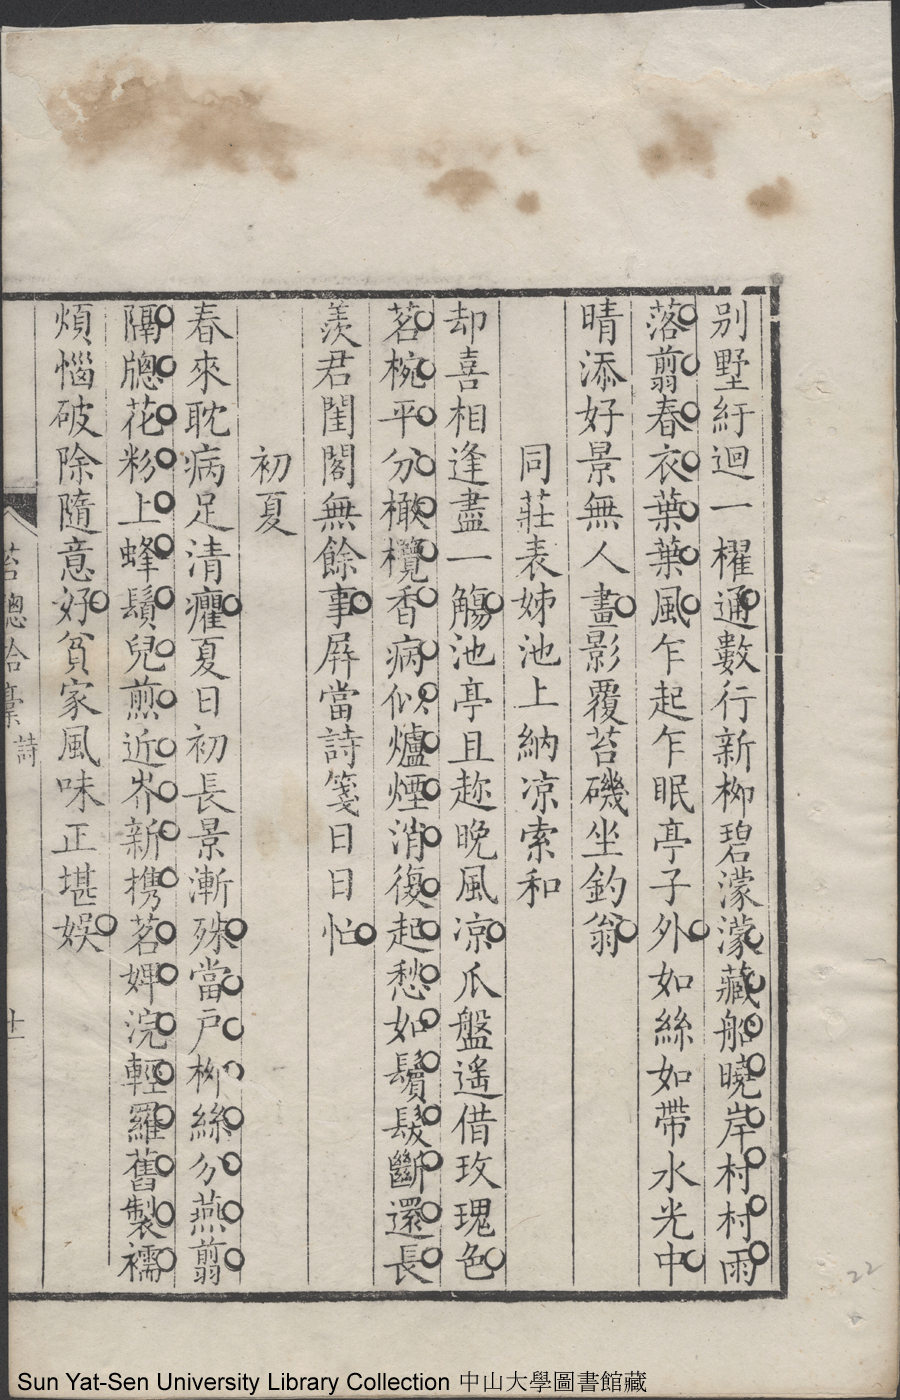 別墅紆迴一櫂通數行新栁碧濛濛藏船曉岸村村雨
落翦春衣葉葉風乍起乍眠亭子外如絲如帶水光中
晴添好景無人畫影覆苔磯坐釣翁
同莊表姊池上納凉索和
却喜相逢盡一觴池亭且趂晚風凉爪盤遙借玫瑰色
茗椀平分橄欖香病似爐煙消復起愁如鬢髮斷還長
羨君閨閣無餘事屛當詩箋日日忙
初夏
春來耽病足清癯夏日初長景漸殊當戶栁絲分燕翦
隔牕花粉上蜂鬚兒煎近岕新擕茗婢浣輕羅舊製襦
煩惱破除隨意好貧家風味正堪娛
詩
十一
22
Sun Yat-Sen University Library Collection 中山大學圖書館藏